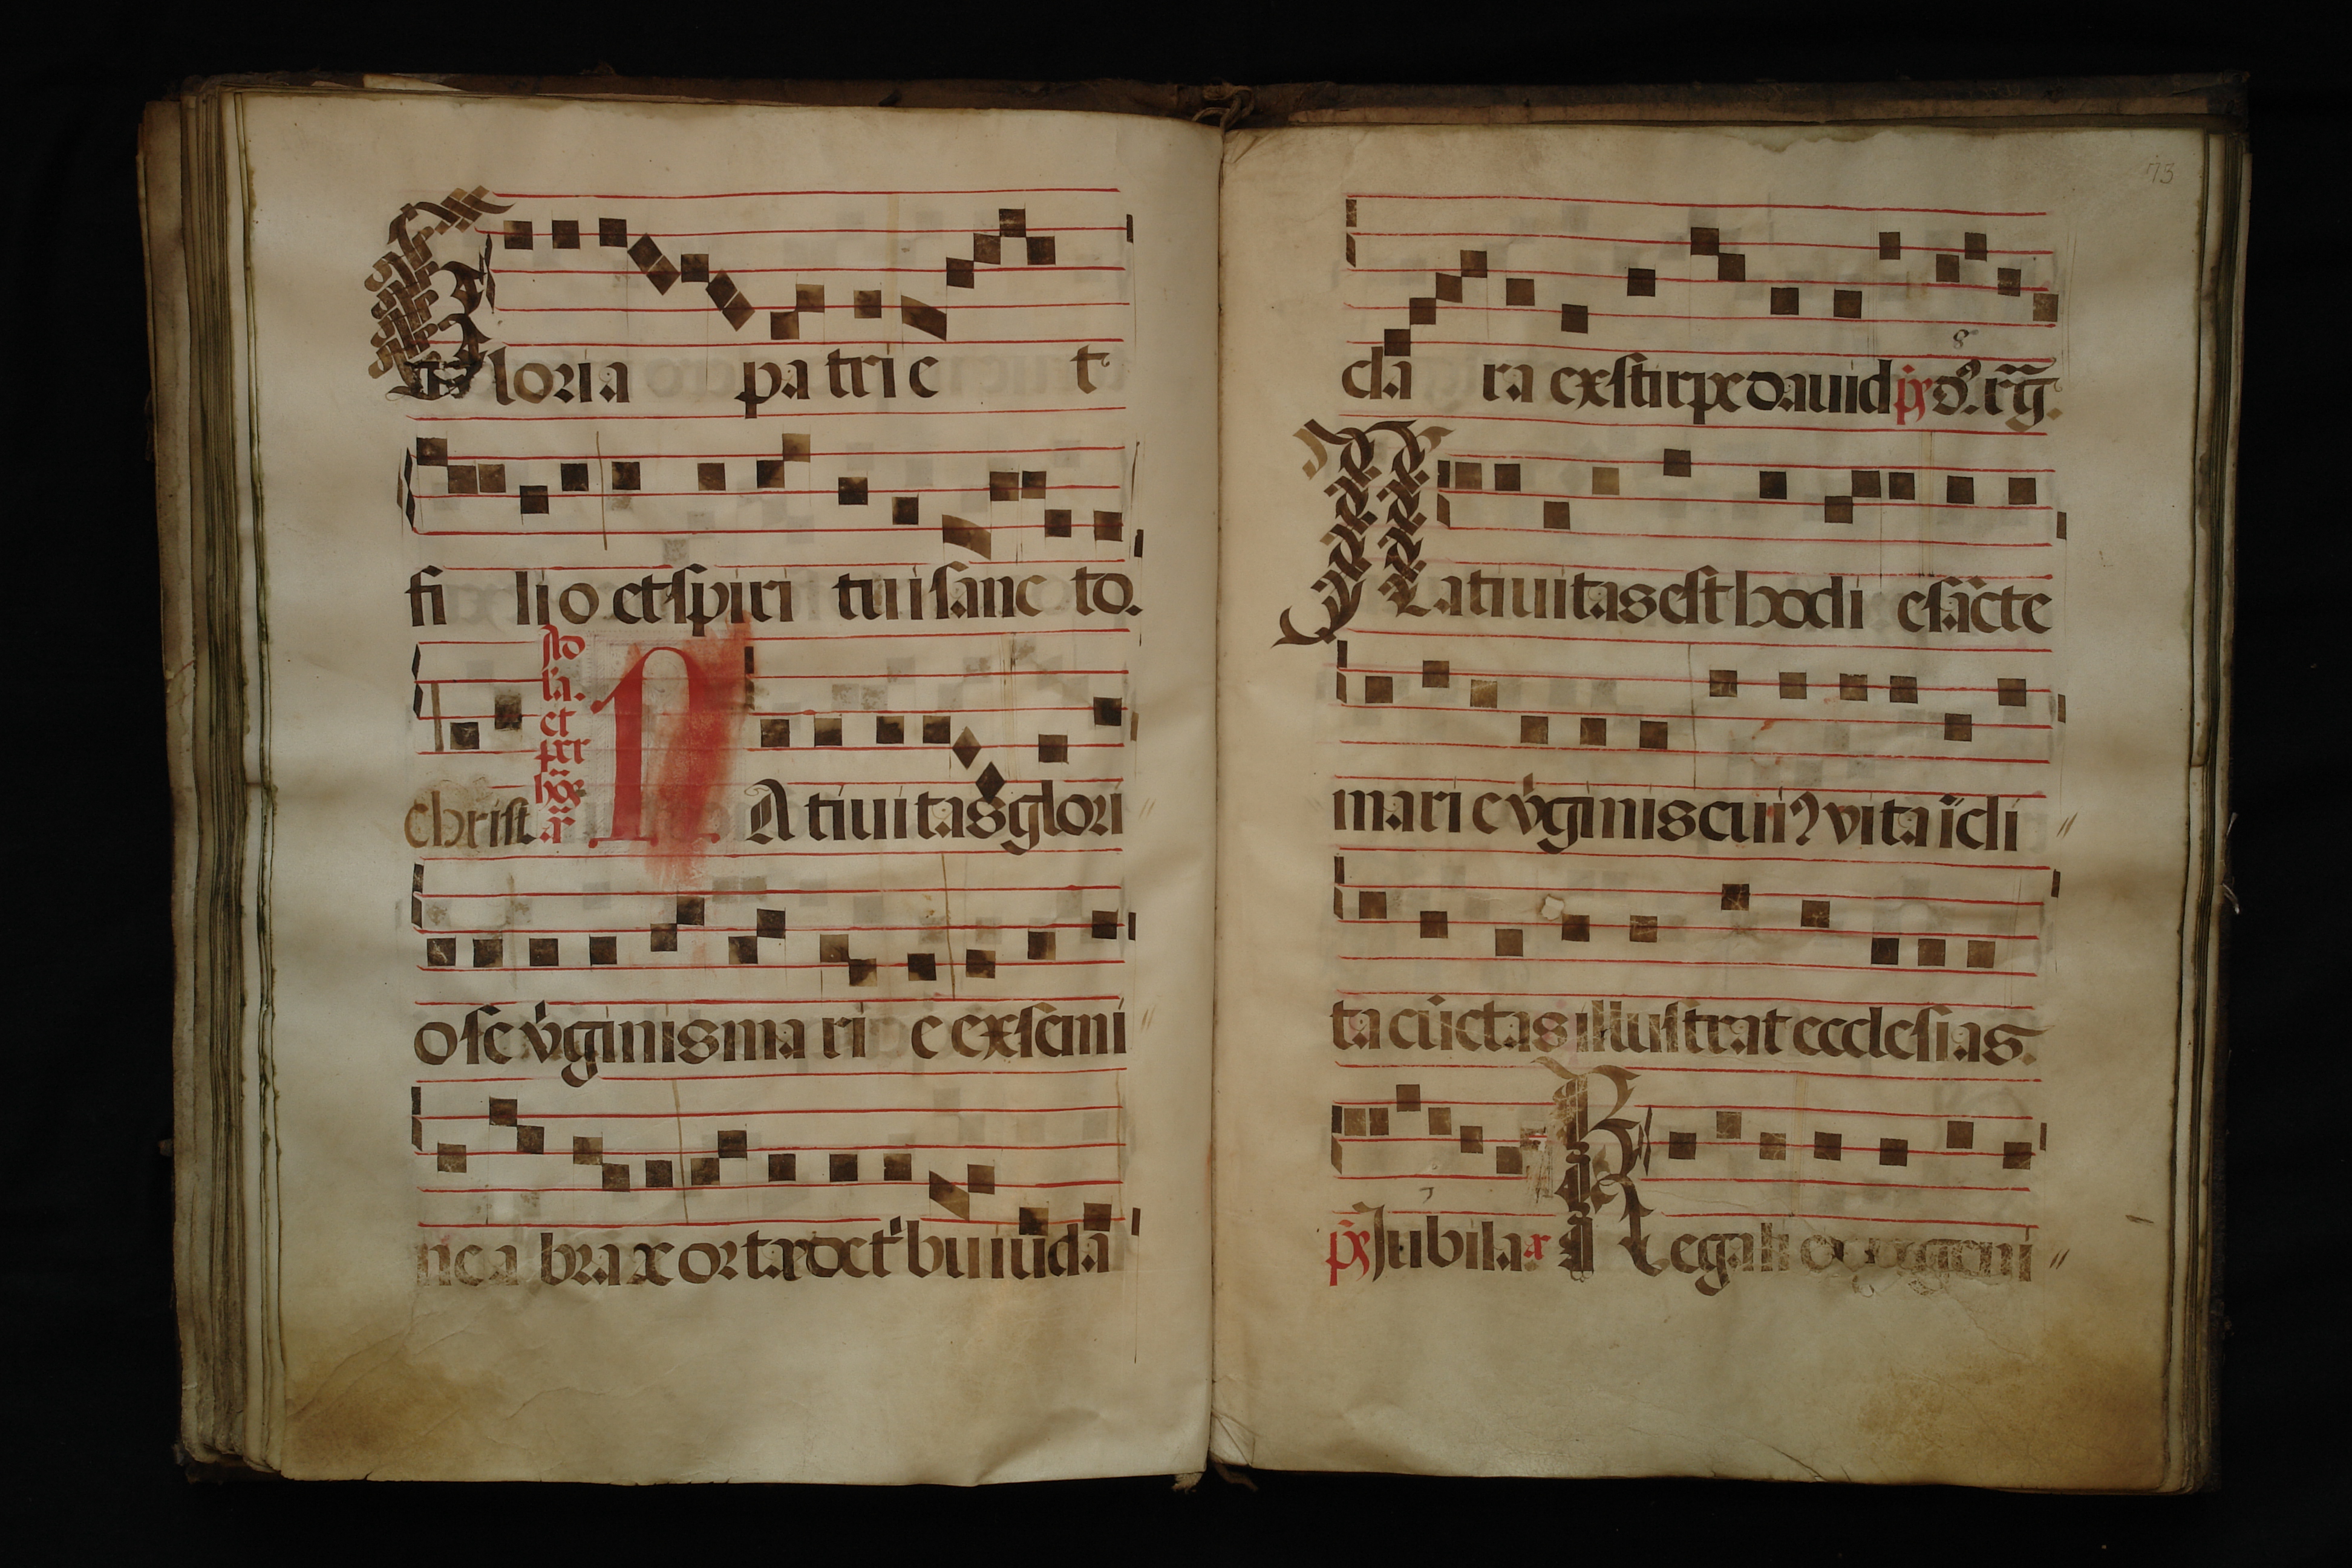 Gloria patri et
filio et spiritui sancto.
Christ Ad la. et per hõr. a.ͣ NAtiuitas glori
ose v̇ginis marie ex semi
ne abrae orta de tribu iuda
73
clara ex stirpe dauid p̃s dñs. rg̃.
8
Natiuitas est hodie sãcte
marie v̇ginis cuiꝰ vita ĩcli
ta cũctas illustrat ecclesias.
p̃s Jubila a. Regali ex progeni